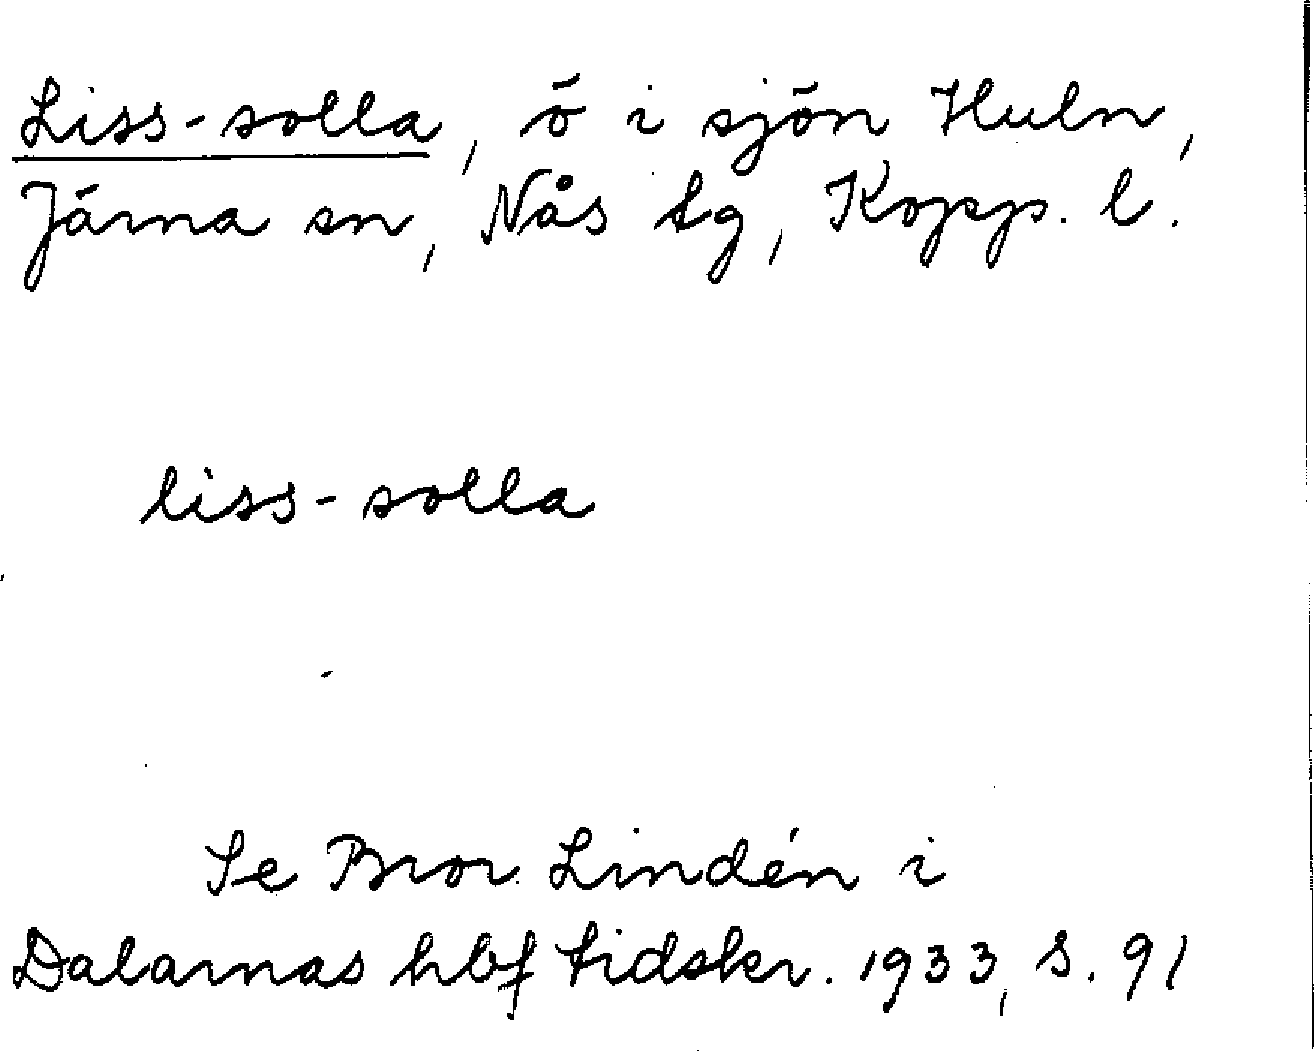 Liss-solla, ö i sjön Huln,
Järna sn, Nås tg, Kopp. l.
liss-solla
Se Bror Lindén i
Dalarnas hbf tidskr. 1933, s. 91